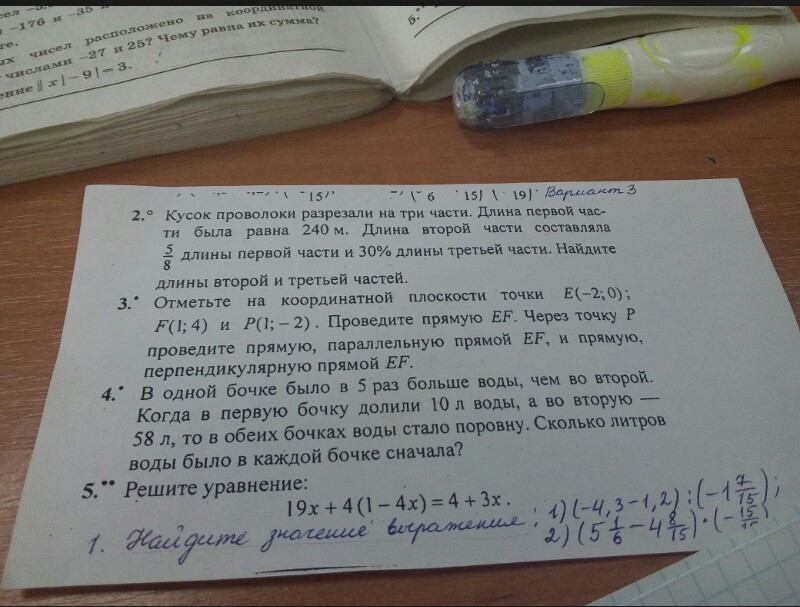 -176 и -35 и
чисел расположено на координатной
числами -27 и 25? Чему равна их сумма?
|| x | - 9 | = 3.
5.
15) 6 15) ( 19) . Вариант 3
2.° Кусок проволоки разрезали на три части. Длина первой час-
ти была равна 240 м. Длина второй части составляла
5/8 длины первой части и 30% длины третьей части. Найдите
длины второй и третьей частей.
3.• Отметьте на координатной плоскости точки E(-2; 0);
F(1; 4) и P(1; -2). Проведите прямую EF. Через точку P
проведите прямую, параллельную прямой EF, и прямую,
перпендикулярную прямой EF.
4.• В одной бочке было в 5 раз больше воды, чем во второй.
Когда в первую бочку долили 10 л воды, а во вторую —
58 л, то в обеих бочках воды стало поровну. Сколько литров
воды было в каждой бочке сначала?
5.•• Решите уравнение:
19x + 4 (1 - 4x) = 4 + 3x.
1. Найдите значение выражения: 1) (-4,3 - 1,2) : (-1 7/15);
2) (5 1/6 - 4 8/15) · (- 15/